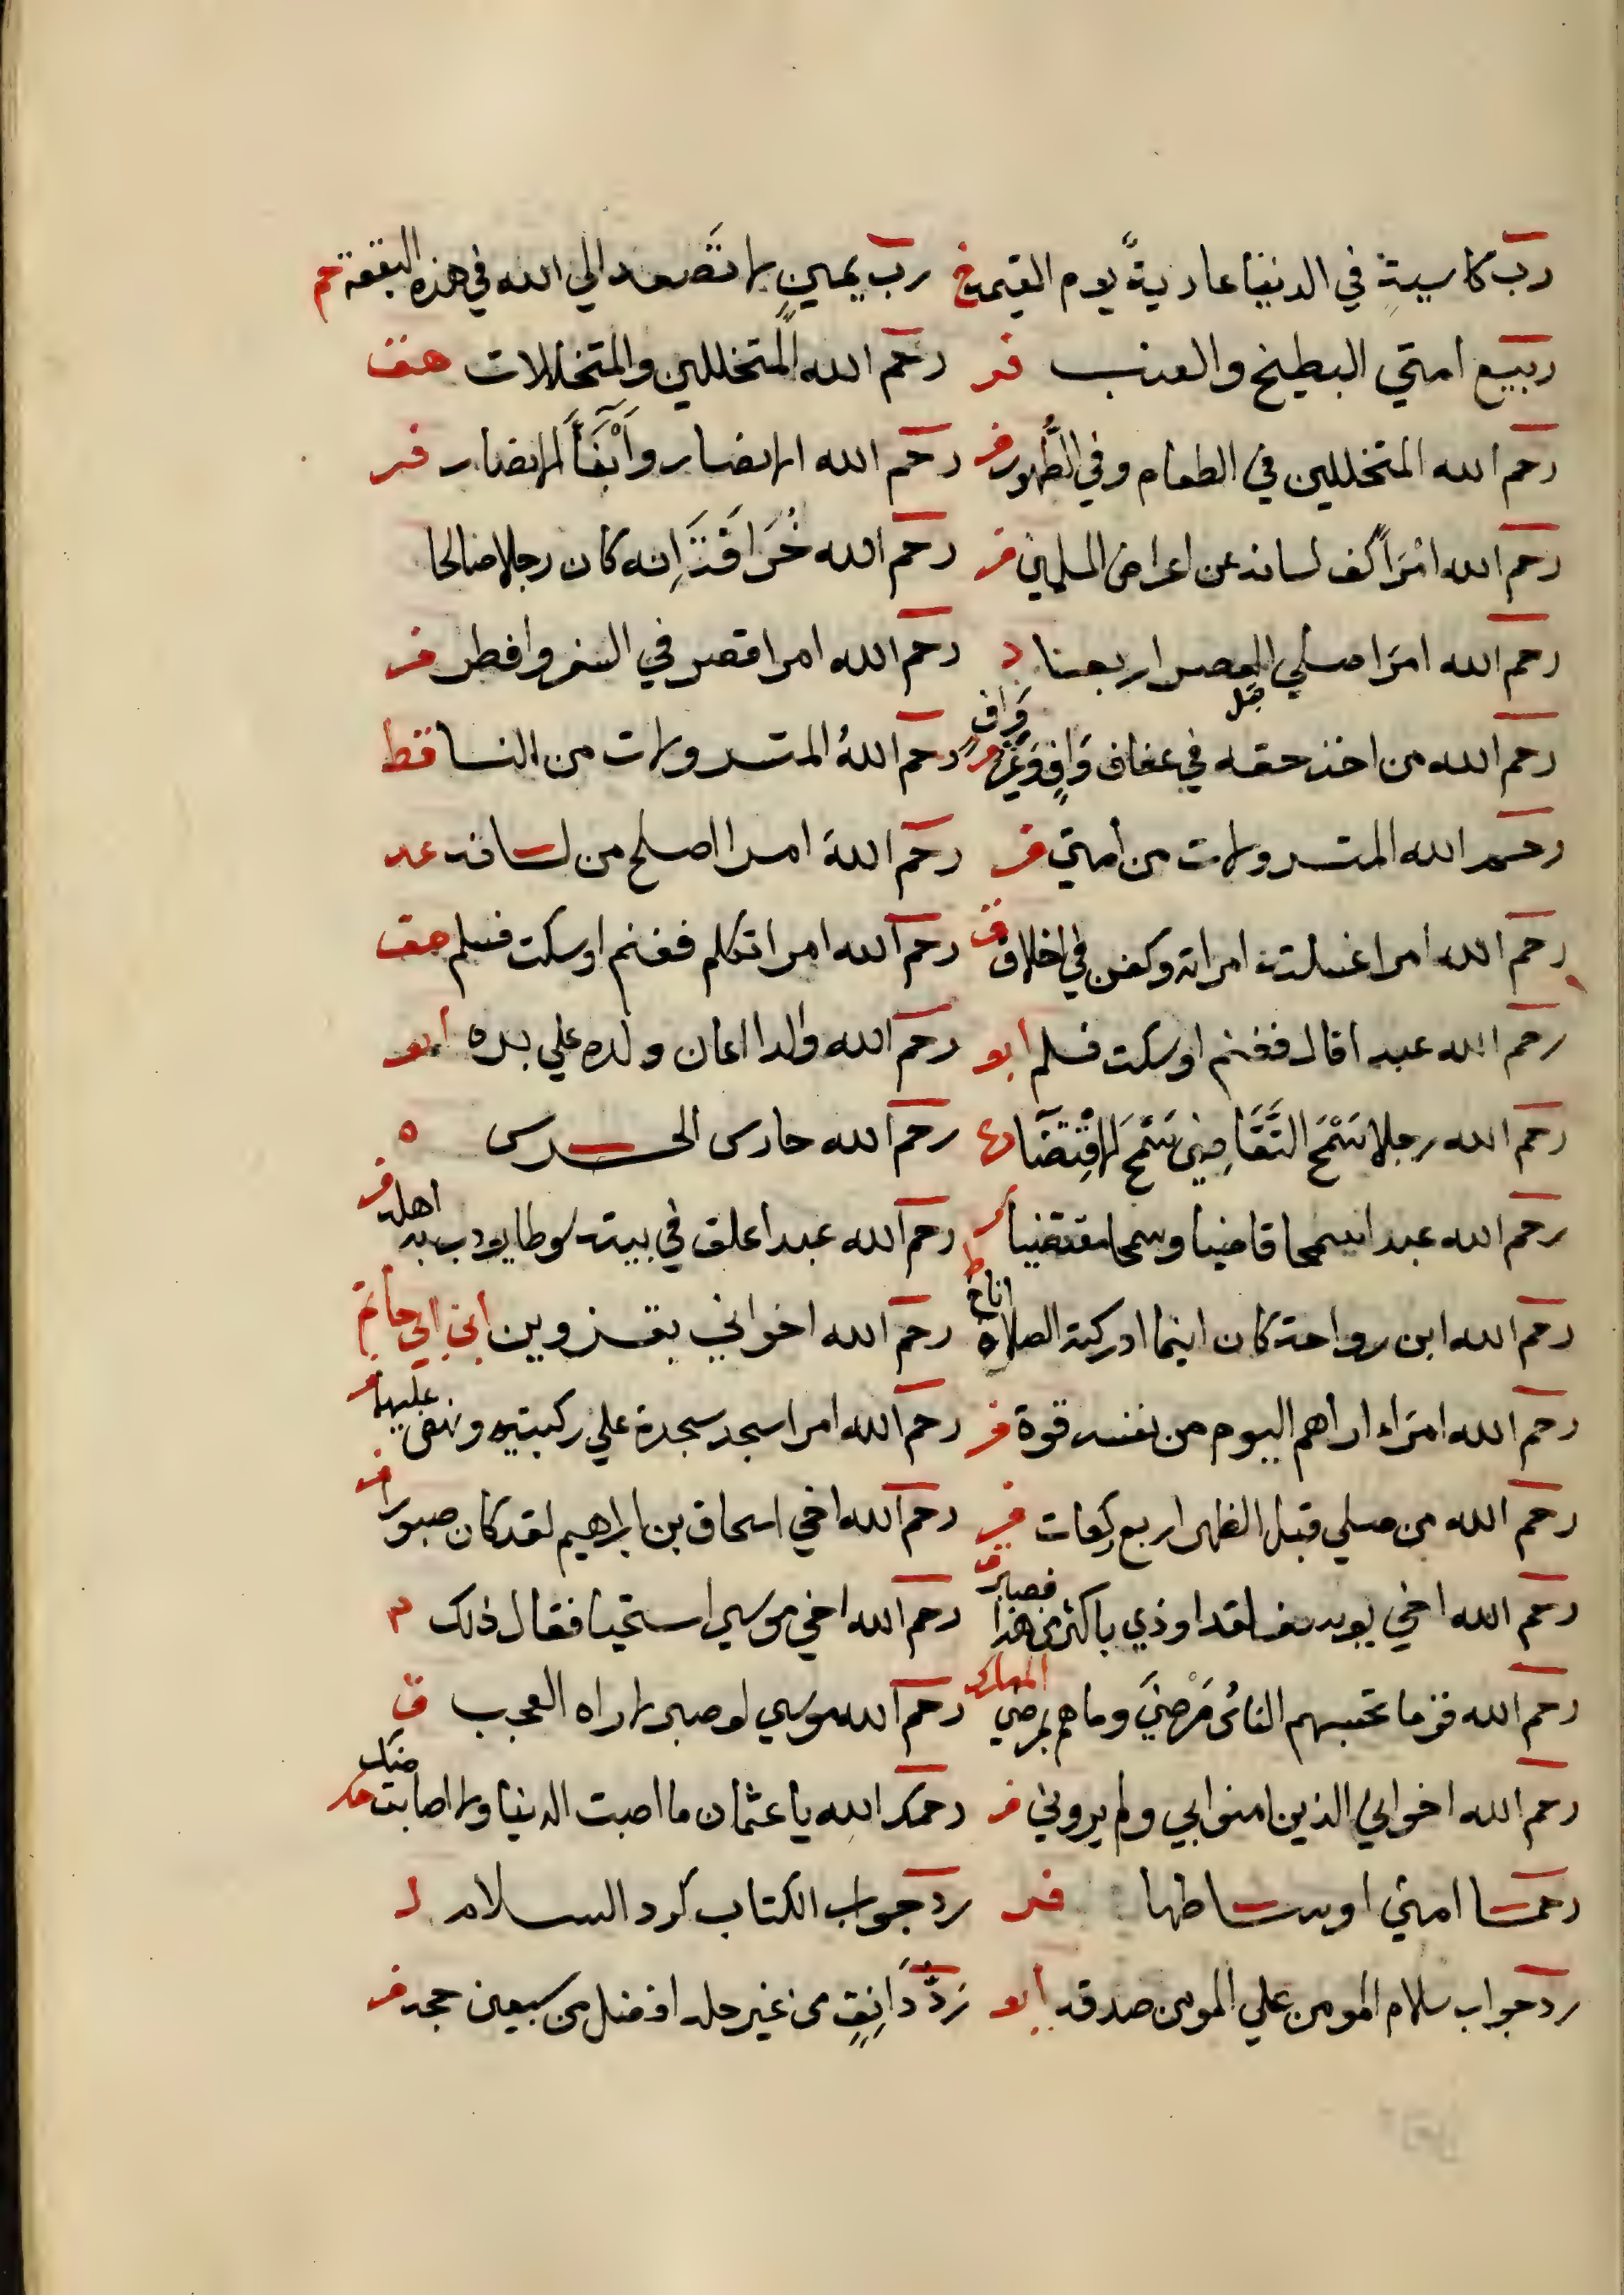 رب كاسية في الدنيا عارية يوم القيمة خ رب يمين لا تصعد الي الله في هذه البقعة حم
ربيع امتي البطيخ والعنب فر رحم الله المتخللين والمتخللات هف
رحم الله المتخللين في الطعام وفي الطهور فر رحم الله الانصار وابنا الانصار فر
رحم الله امرا كف لسانه عن اعراض المسلمين فر رحم الله خرافة انه كان رجلا صالحا
رحم الله امرا صلي قبل العصر اربعا د رحم الله امرا قصر في السفر وافطر فر
رحم الله من اخذ حقه في عفاف واف وغير واف رحم الله المتسرولات من النسا قط
رحم الله المتسرولات من أمتي فر رحم الله امرا اصلح من لسانه عد
رحم الله امرا غسلته امراته وكفن في اخلاقه رحم الله امرا تكلم فغنم اوسكت فسلم هف
رحم الله عبدا قال فغنم اوسكت فسلم أبو رحم الله والدا اعان ولده علي بره أبو
رحم الله رجلا سمح التقاضي سمح الاقتضا رحم الله حارس الحرس ه
رحم الله عبدا سمحا قاضيا وسمحا مقتضيا رحم الله عبدا علق في بيته سوطا يودب به اهله فر
رحم الله ابن رواحة كان اينما ادركته الصلاة اناخ رحم الله اخواني بقزوين أبن ابي حاتم
رحم الله امراء اراهم اليوم من نفسه قوة فر رحم الله امرا سجد سجدة علي ركبتيه ونهض عليهما
رحم الله من صلي قبل الظهر اربع ركعات فر رحم الله اخي اسحاق بن ابراهيم لقد كان صبورا فر
رحم الله اخي يوسف لقد اوذي باكثر من هذا فصبر رحم الله اخي موسي استحيا فقال ذلك
رحم الله قوما تحسبهم الناس مرضي وما هم بمرضي المبارك رحم الله موسي لو صبر لاراه العجب ق
رحم الله اخواني الذين امنوا بي ولم يروني فر رحمك الله يا عثمان ما اصبت الدنيا ولا اصابت منك
رحما امتي اوساطها فر رد جواب الكتاب كرد السلام
رد جواب سلام المومن علي المومن صدقه أبو رد دانق من غير حله افضل من سبعين حجه فر